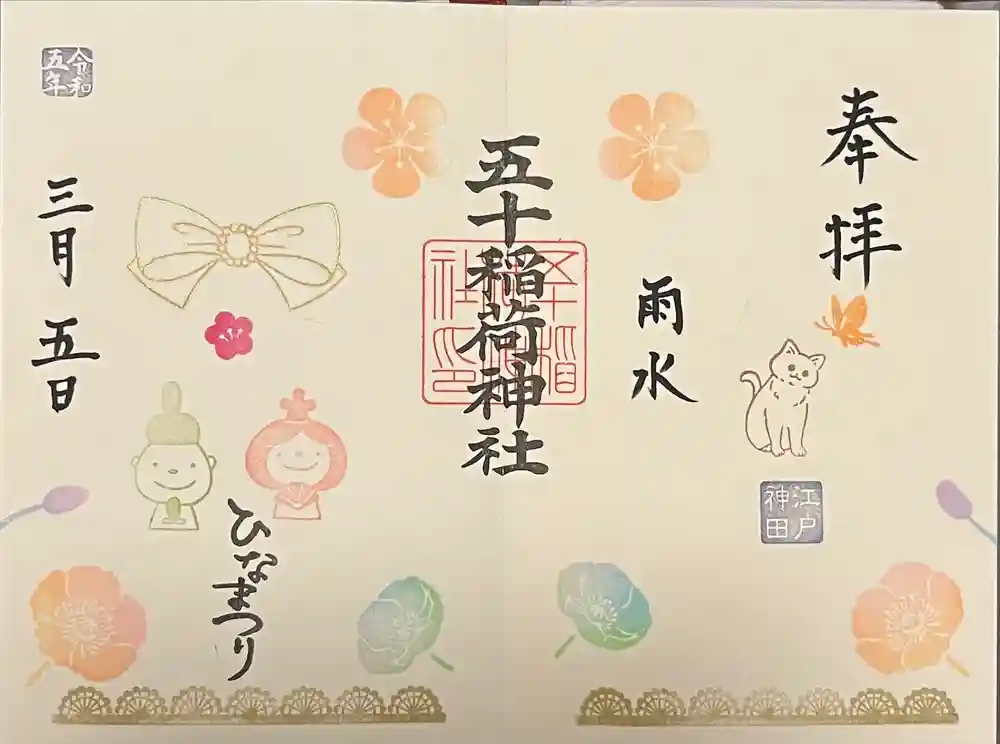 奉拝
江戸
神田
雨水
五十稲荷神社
ひなまつり
令和
五年
三月五日